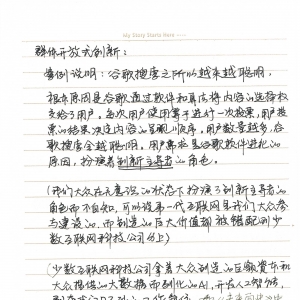 My Story Starts Here
群体开放式创新:
案例说明:谷歌搜索之所以越来越聪明,
根本原因是谷歌通过软件和算法将内容的选择权
交给了用户。每次用户使用等于进行一次投票,用户投
票的结果决定内容的呈现顺序,用户数量越多,谷
歌搜索会越聪明。用户群体是谷歌软件进化的
原因,扮演着创新主导者的角色。
(我们大众在无意识的状态下扮演了创新主导者的
角色而不自知,可以说第一代互联网是我们大众参
与建设的,而创造的巨大价值却被错配到少
数互联网科技公司身上)
(少数互联网科技公司拿着大众创造的巨额资本和
大众提供的大数据而创化的AI,并在人工智能